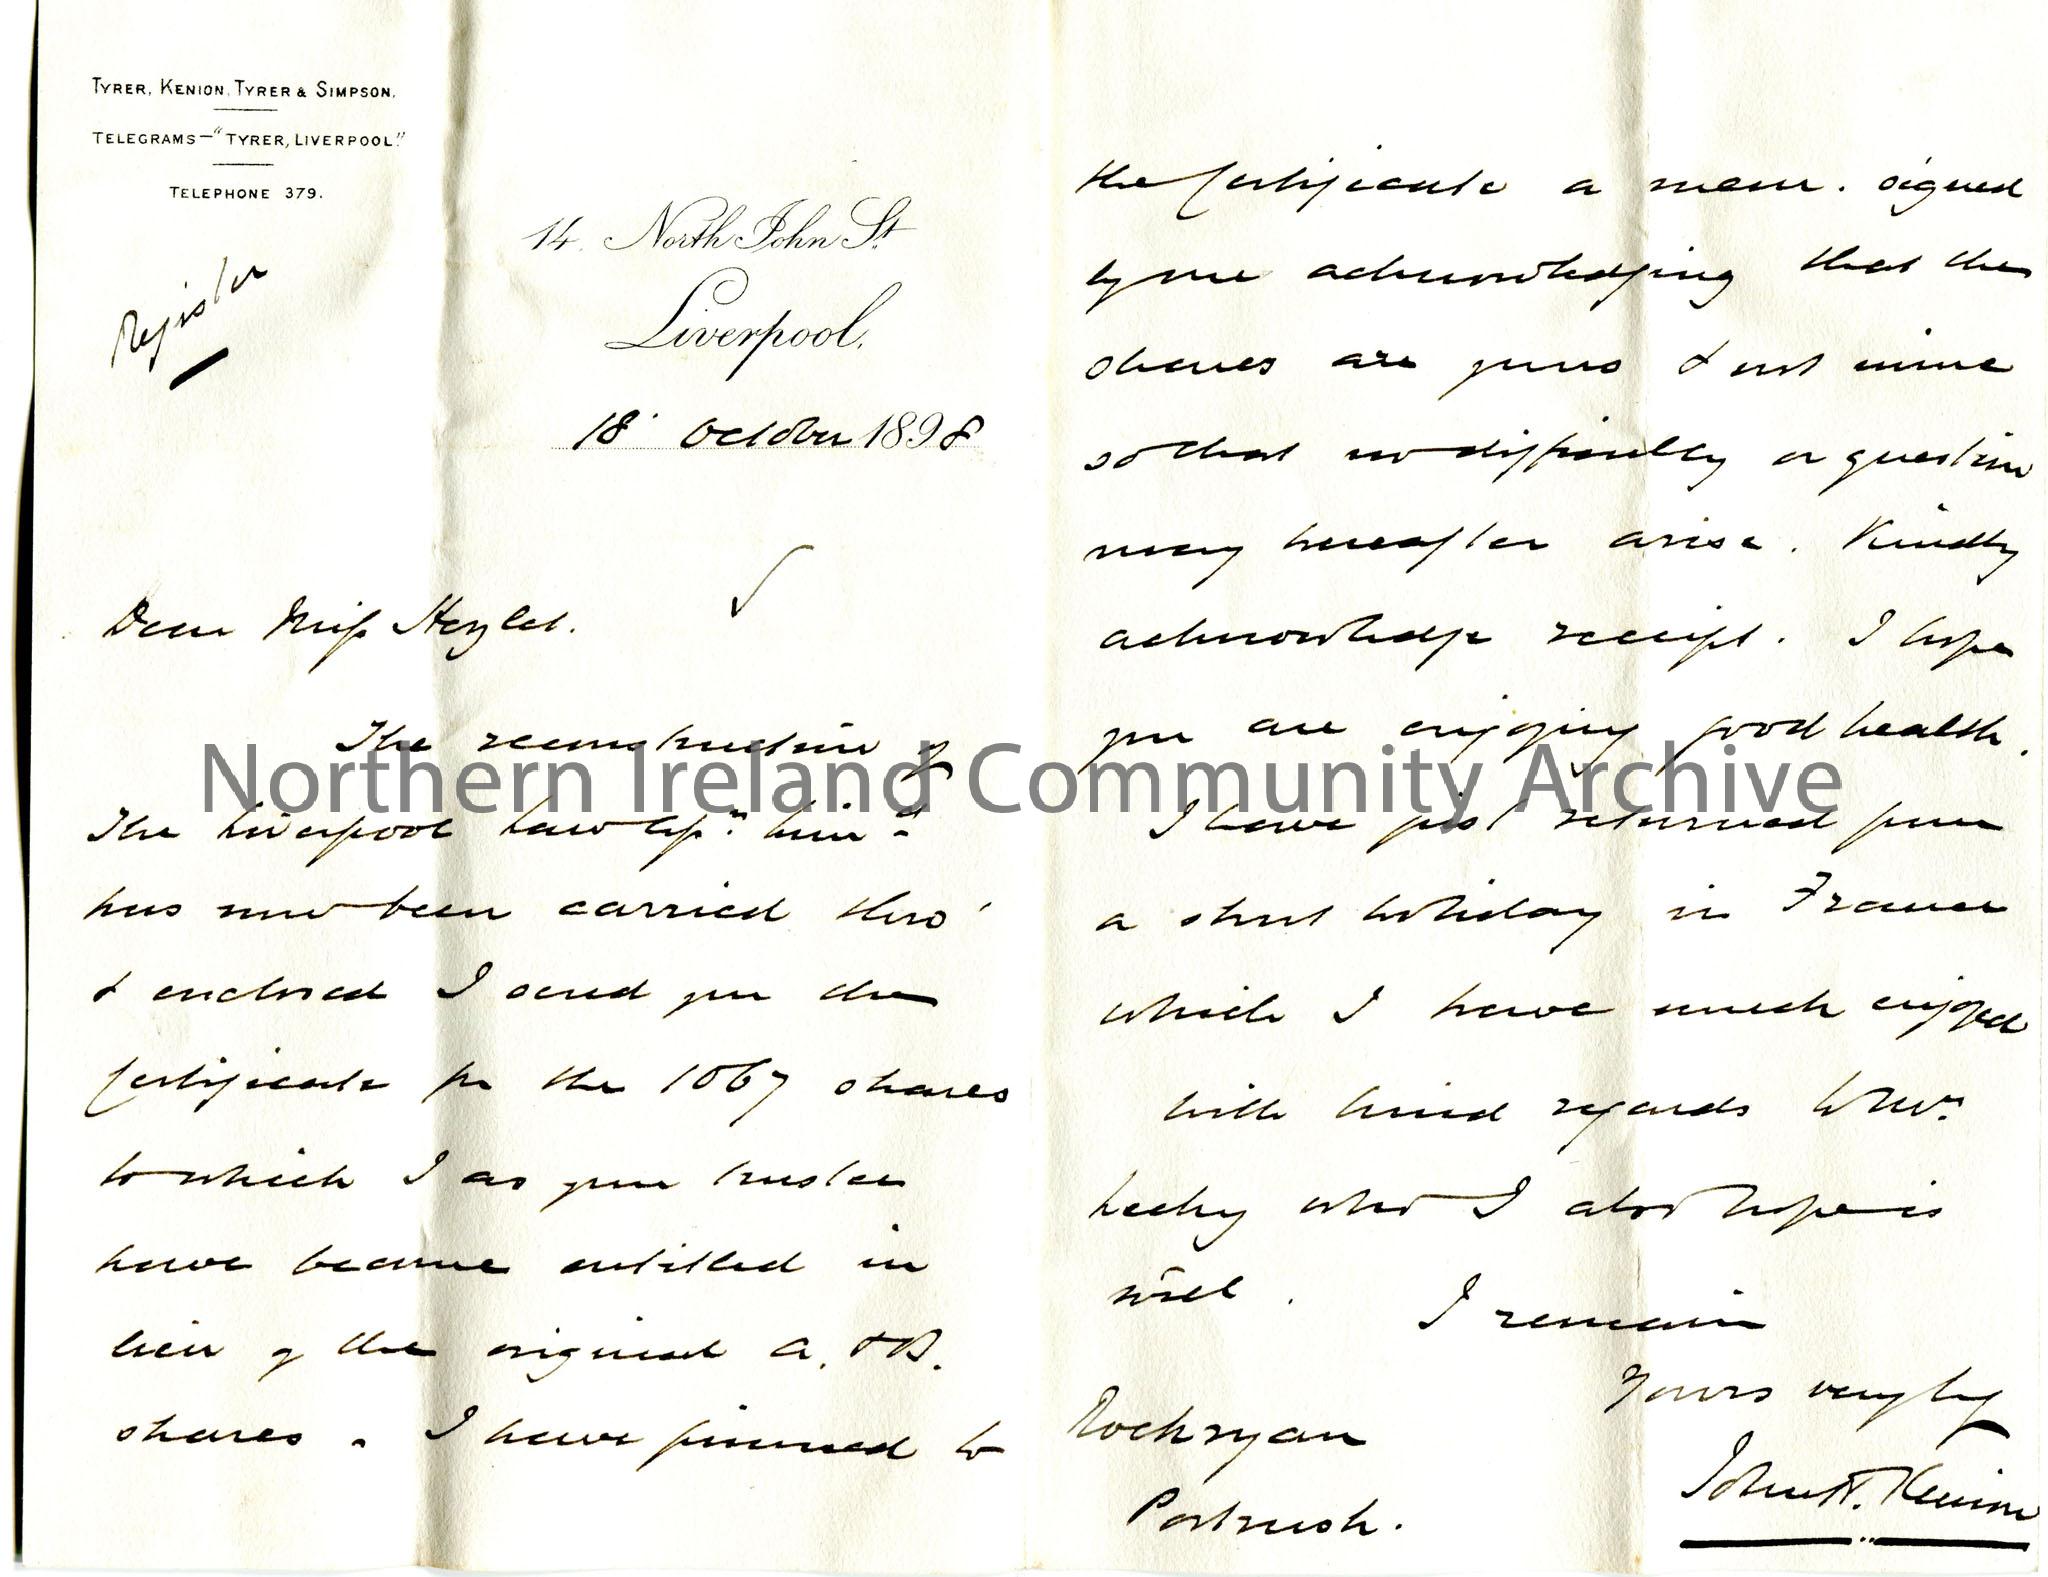 TYRER, KENION, TYRER & SIMPSON.
TELEGRAMS—"TYRER, LIVERPOOL."
TELEPHONE 379.
Register
14, North John St.
Liverpool.
18 October 1898
Dear Miss Hezlet.
The reconstruction of
The Liverpool Lim^d
has now been carried thro'
& enclosed I send you the
Certificate for the 1067 shares
to which I as your trustee
have become entitled in
lieu of the original A. & B.
shares. I have pinned to
the Certificate a mem. signed
by me acknowledging that the
shares are yours & not mine
so that no difficulty or question
may hereafter arise. Kindly
acknowledge receipt. I hope
you are enjoying good health.
I have just returned from
a short holiday in France
which I have much enjoyed
With kind regards to Mrs.
Lecky who I also hope is
well.
I remain
Yours very try
John Kenion
Rockryan
Portrush.
Northern Ireland Community Archive